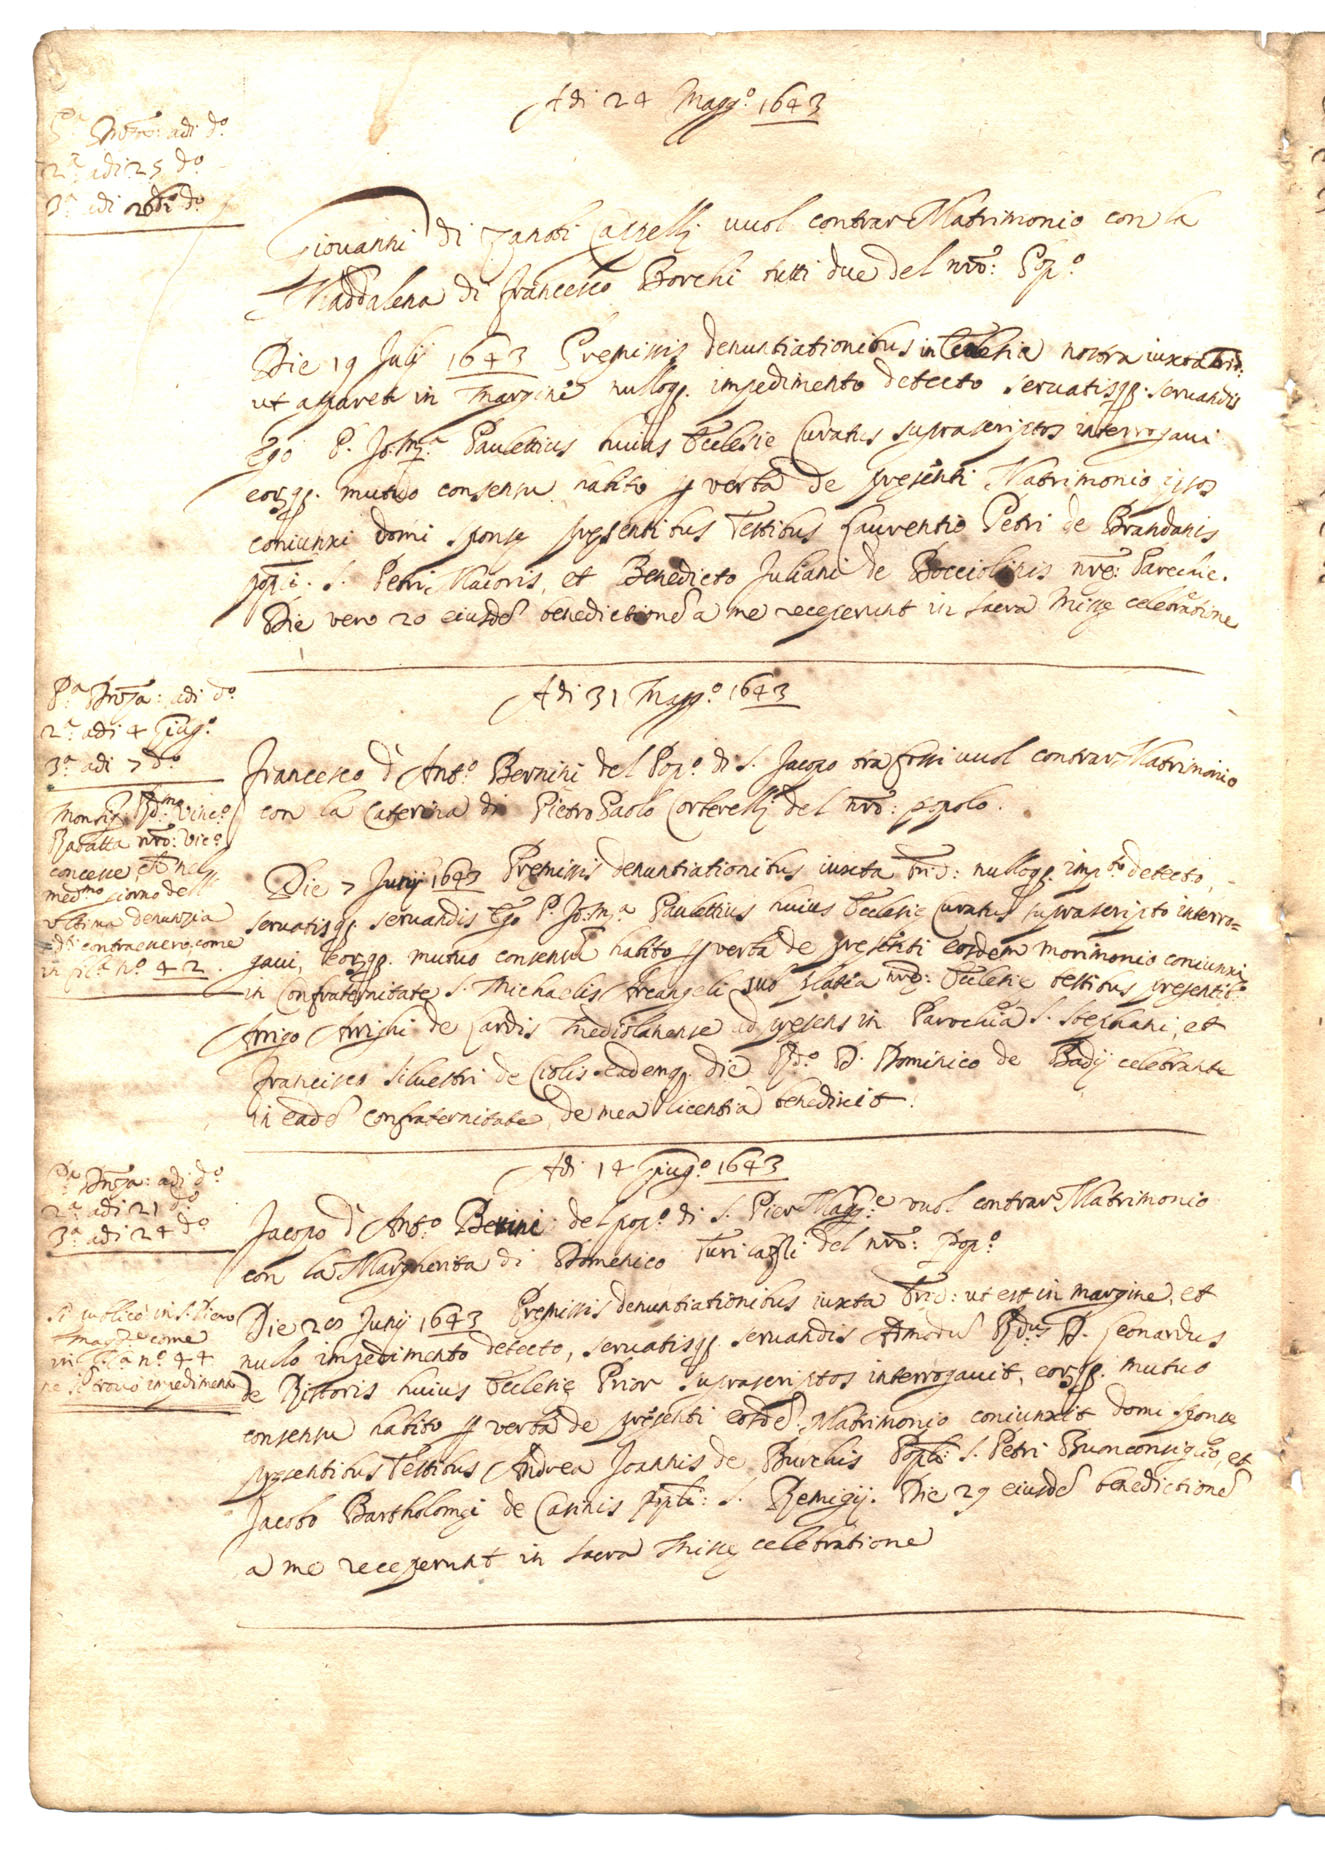 Adi 24 Magg.º 1643
Pª Dnoza: adi dº
2ª adi 25 dº
3ª adi 26 di dº
Giovanni di Zanobi Cappelli vuol contrar Matrimonio con la
Maddalena di Francesco Borchi tutti due del nrō: Pop.º
Die 19 Julij 1643 Premissis denuntiationibus in Ecclesia nostra iuxta Trid:
ut apparet in margine nulloq. impedimento detecto servatisq. servandis
Ego P. Jo: Mª Paulettius huius Ecclesie Curatus suprascriptos interrogavi
eorq. mutuo consensu habito p verba de presenti Matrimonio ipsos
coniunxi domi sponse presentibus Testibus Laurentio Petri de Brandanis
popli. S. Petri Maioris, et Benedicto Juliani de Bocciolinis nrē: Parecie.
Die vero 20 eiusdē benedictionē a me receperunt in sacra Misse celebratione
Adi 31 Magg.º 1643
Pª Dnoza: adi dº
2ª adi 4 Giugº
3ª adi 7 dº
Francesco d'Antº Bernini del Popº di S. Jacopo tra fossi vuol contrar Matrimonio
con la Caterina di Pietro Paolo Corterelli del nrō: popolo.
Monsig. Rdmo Vincº
Rabatta nrō: Vicº
concesse, ch nel
medmo giorno dell
ultima denunzia
contraevero, come
in filª nº 42.
Die 7 Junij 1643 Premissis denuntiationibus iuxta Trid: nulloq. impto detecto,
servatisq. servandis Ego P. Jo: Mª Paulettius huius Ecclesie Curatus suprascripto interro=
gavi, eorq. mutuo consensu habito p verba de presenti eosdem morimonio coniunxi
in Confraternitate S. Michaelis Arcangeli sub platea nrē: Ecclesie testibus presentib.
Arrigo Arrighi de Cardis Mediolanense ad presens in Parochia S. Stephani, et
Francisco Silvestri de Ciolis eademq. die Rdº D. Dominico de Badij celebrante
in eadē confraternitate, de mea licentia benedixit.
Adi 14 Giugº 1643
Pª Dnoza: adi dº
2ª adi 21 dº
3ª adi 24 dº
Jacopo d'Antº Berini del popº di S. Pier Magge vuol contrar Matrimonio
con la Margherita di Domenico Turicazli del nrō: popº
Si publicò in S. Piero
Magge come
in filª nº 44
ne si trovò impedimento
Die 28 Junij 1643 Premissis denuntiationibus iuxta Trid: ut est in margine, et
nullo impedimento detecto, servatisq. servandis Admodū Rdus D. Leonardus
de Ristoris huius Ecclesie Prior suprascriptos interrogavit, eorq. mutuo
consensu habito p verba de presenti eosdē Matrimonio coniunxit domi sponse
presentibus Testibus Andrea Joannis de Burchis Popli: S. Petri Bonconsiglio, et
Jacobo Bartholomei de Cannis popli: S. Remigij. Die 29 eiusdē benedictionē
a me receperunt in sacra Misse celebratione